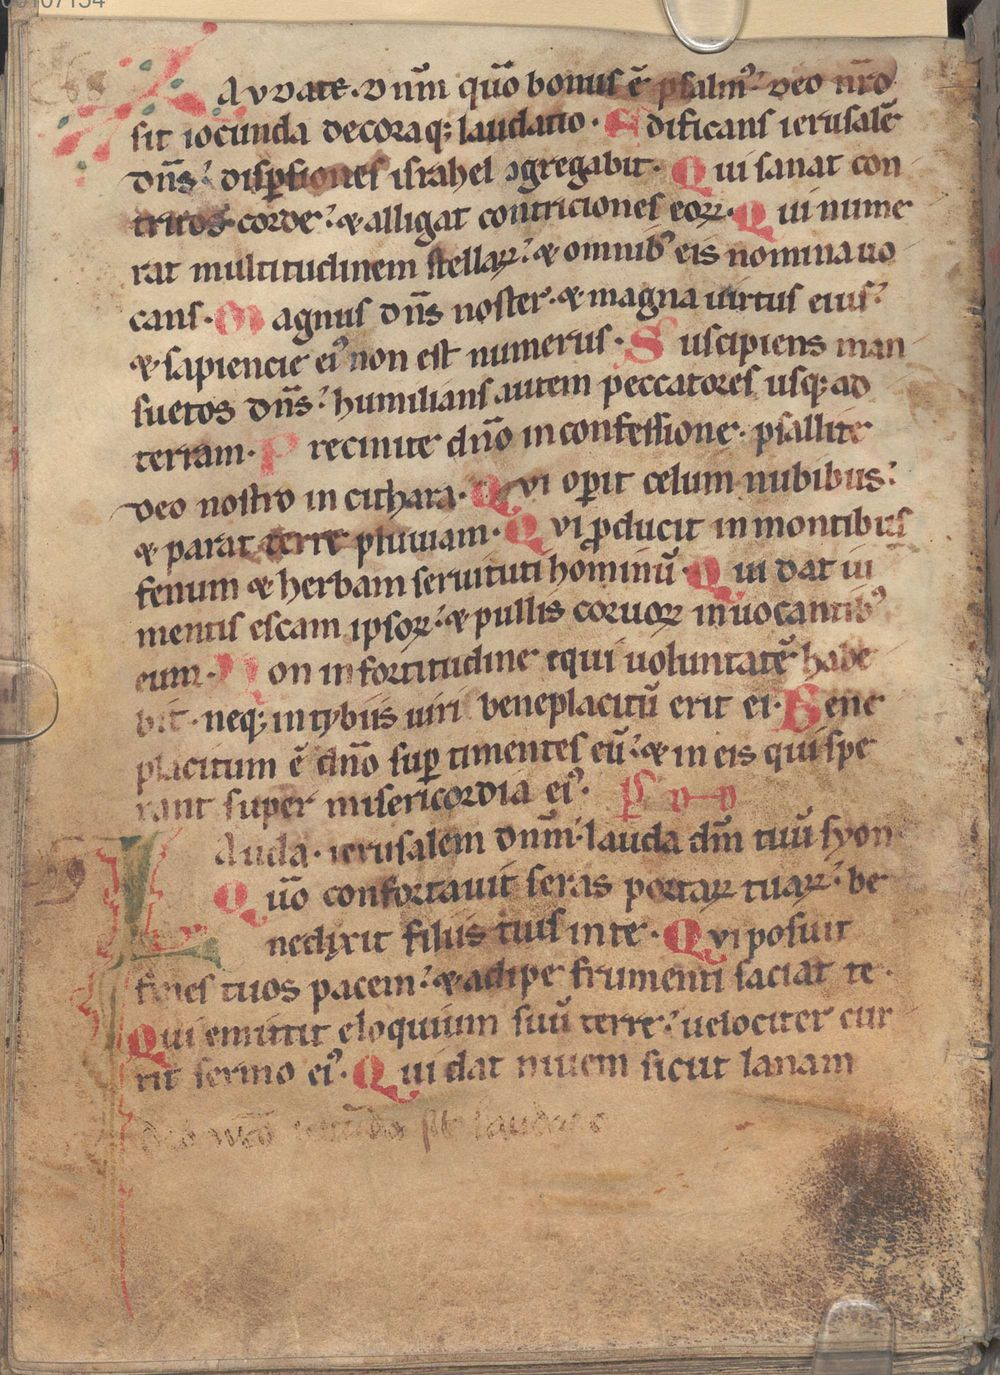 Lavdate dnm̄ quo̅ bonus ē psalmꝰ deo nr̄o
sit iocunda decoraqꝫ laudatio · Edificans ierusalē
dn̄s dispersiones israhel ꝯgregabit · Qui sanat con
tritos corde & alligat contriciones eoꝝ · Qui nume
rat multitudinem stellaꝝ & omnibꝰ eis nomina uo
cans · Magnus dn̄s noster · & magna uirtus eius
& sapiencie eiꝰ non est numerus · Suscipiens man
suetos dn̄s humilians autem peccatores usqꝫ ad
terram · Precinite dn̄o in confessione · psallite
deo nostro in cithara · Qvi oꝑit celum nubibus
& parat terre pluuiam · Qvi ꝓducit in montibus
fenum & herbam seruituti hominū · Qui dat iu
mentis escam ipsoꝝ & pullis coruoꝝ inuocantibꝰ
eum · Non in fortitudine equi uoluntatē habe
bit · neqꝫ in tybiis uiri beneplacitū erit ei · Bene
placitum ē dn̄o suꝑ timentes eū & in eis qui spe
rant super misericordia eiꝰ · ps
Lauda · ierusalem dnm̄ · lauda dm̄ tuū syon
Quo̅ confortauit seras portaꝝ tuaꝝ · be
nedixit filiis tuis in te · Qvi posuit
fines tuos pacem & adipe frumenti saciat te ·
Qui emittit eloquium suū terre uelociter cur
rit sermo eiꝰ · Qui dat niuem sicut lanam